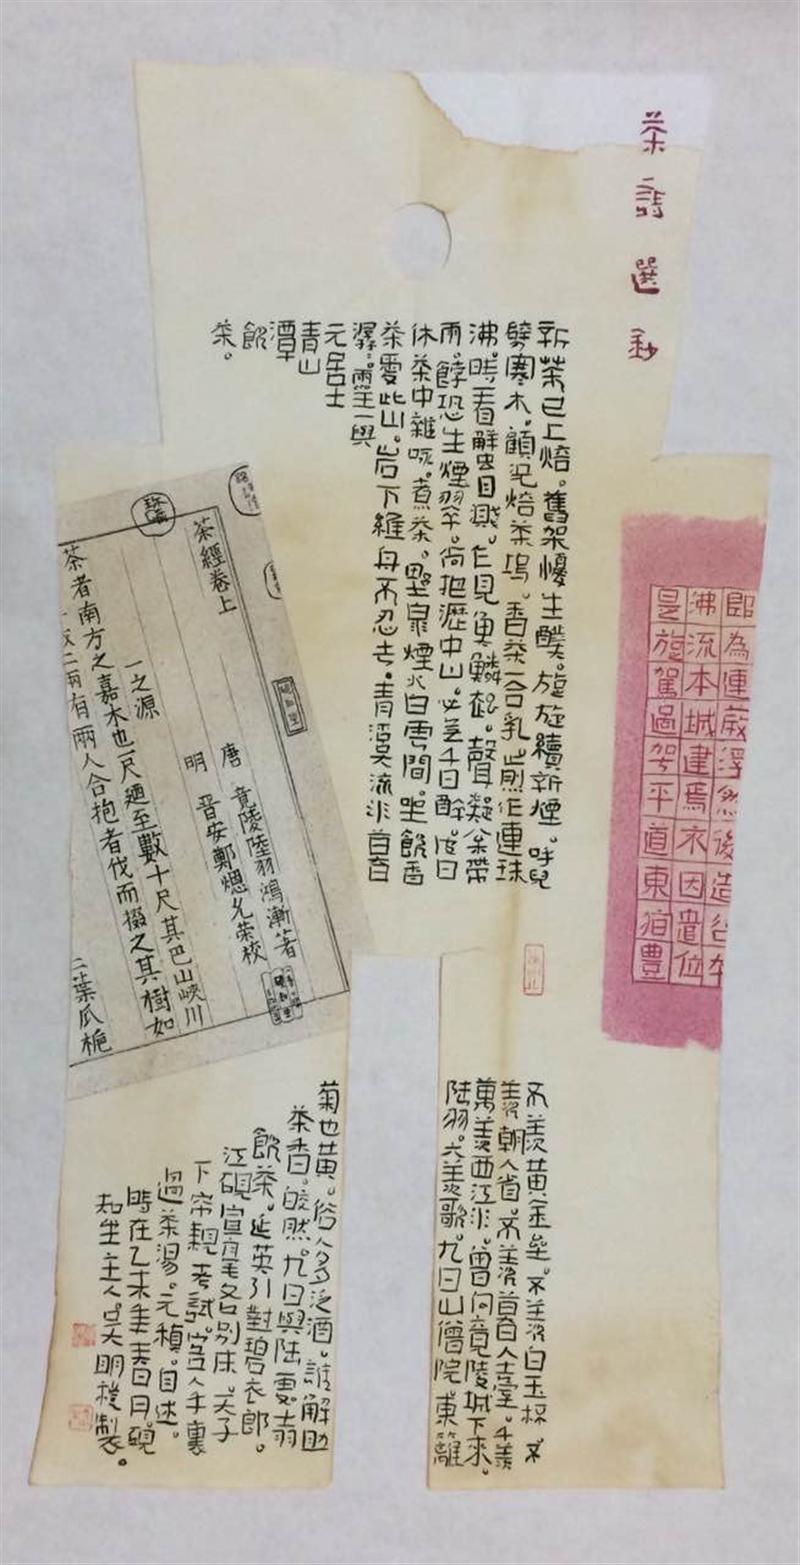 茶詩選鈔
新茶已上焙。舊架憂生醭。旋旋續新煙。呼兒
劈寒木。顧況焙茶塢。香茶一合乳。煎作連珠
沸。時看蟹目濺。乍見魚鱗起。聲疑松帶
雨。餑恐生煙翠。尚把瀝中山。必無千日醉。皮日
休茶中雜咏。煮茶。野泉煙火白雲間。坐飲香
茶愛此山。岩下維舟不忍去。青溪流水暮
潺潺。靈一與
元居士
青山
潭
飲
茶。
即為連蕨浮然後造谷
沸流本城建焉衣因遣位
是旋駕過架平道東狛豊
茶經卷上
唐 竟陵陸羽鴻漸著
明 晉安鄭熜允榮校
一之源
茶者南方之嘉木也一尺廼至數十尺其巴山峽川
有兩人合抱者伐而掇之其樹如
瓜
葉梔
不羨黃金罍。不羨白玉杯。不
羨朝入省。不羨暮入臺。千羨
萬羨西江水。曾向竟陵城下來。
陸羽。六羨歌。九日山僧院。東籬
菊也黃。俗人多泛酒。誰解助
茶香。皎然。九日與陸處士羽
飲茶。延英引對碧衣郎。
江硯宣毫各別床。天子
下帘親考試。宮人手裏
過茶湯。元稹。自述。
時在乙未年春月。硯
知生主人吳明樸製。